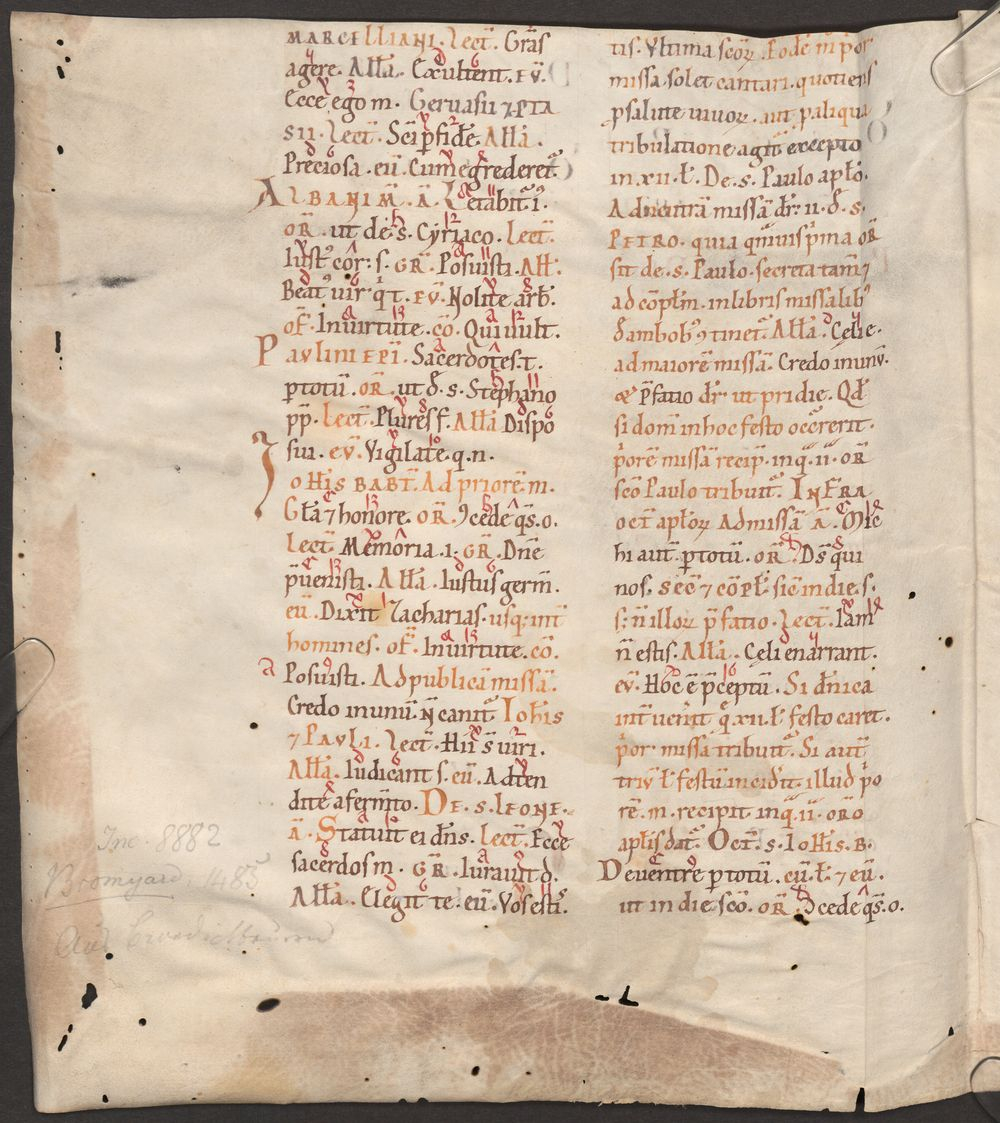 MARCELLIANI. Lect̄. Gr̄as
agere. All̄a. Exultent. EV̄.
Ecce ego m. Geruasii ⁊ PTA
SII. Lect̄. Sc̄i p fidē. All̄a.
Preciosa. eū. Cum egrederet᷑.
ALBANI M̄. Ā. Letabit᷑ i.
OR̄. ut de .s. Cyriaco. Lect̄.
Iust᷒ cor̄: s. GR̄. Posuisti. All̄.
Beat᷒ uir q̇ t. EV̄. Nolite arb̄.
of̄. In uirtute. cō. Qui uult.
PAVLINI EPĪ. Sacerdotes. t.
ꝑ totū. OR̄. ut đ. s. Stephano
pp̄. Lect̄. Plures f. All̄a Dispo
sui. ev̄. Vigilate. q. n.
IoHIS BABT̄. Ad priorē m.
Gl̄a ⁊ honore. OR̄. ꝯcede qs̄. o.
Lect̄. Memoria. i. GR̄. Dn̄e
p̄uenisti. All̄a. Iustus germ̄.
eū. Dixit Zacharias. usq; int̄
homines. of̄. In uirtute. cō.
Posuisti. Ad publicā missā.
Credo in unū n̄ canit᷑. Ioh̄is
⁊ PAVLI. Lect̄. Hii s̄ uiri.
All̄a. Iudicant s. eū. Adten
dite a ferm̄to. DE .S. LEONE.
ā. Statuit ei dn̄s. Lect̄. Ecce
sacerdos m. GR̄. Iurauit d.
All̄a. Elegit te. eū. Vos estis.
tis. Vltima scōꝝ. Eodē m̄ por
missa solet cantari. quotiens
ꝓ salute uiuoꝝ. aut ꝑ aliqua
tribulatione agit᷑ excepto
in .xii. ł. De .s. Paulo apło.
Ad uicinā missā dr̄: ii. đ. s.
PETRO. quia q̄muis p̄ma OR̄
sit de .s. Paulo. secreta tam̄
ad cōpl̄m. in libris missalib᷒
đ ambob᷒ ꝯtinet᷑. All̄a. Celi e.
ad maiorē missā. Credo in unv̄.
& p̄fatio dr̄. ut pridie. Qđ
si dom̄ in hoc festo occ̄rerit.
p̄orē missā recip̄. in q̇. ii. OR̄
scō Paulo tribuit᷑. INFRA
oct̄ apłoꝝ Ad missā Ā. Mi e
hi aut̄ ꝑ totū. OR̄. Ds̄ qui
nos. secr̄ ⁊ cōpł. sic̄ in die. s.
s: n̄ illoꝝ p̄fatio. Lect̄. Iam
n̄ estis. All̄a. Celi enarrant.
ev̄. Hoc ē p̄ceptū. Si dn̄ica
int̄uenit q̄ xii. ł festo caret.
p̄or missa tribuit᷑. Si aut̄
triū ł festū incidit. illud p̄o
rē. m. recipit in q̇. ii. oro
apłis dat᷑. Oct̄. s. IoHis. B.
De uentre ꝑ totū. eū. ł. ⁊ eū.
ut in die scō. OR̄. ꝯcede qs̄. o.
Inc. 8882
Bromyard. 1485